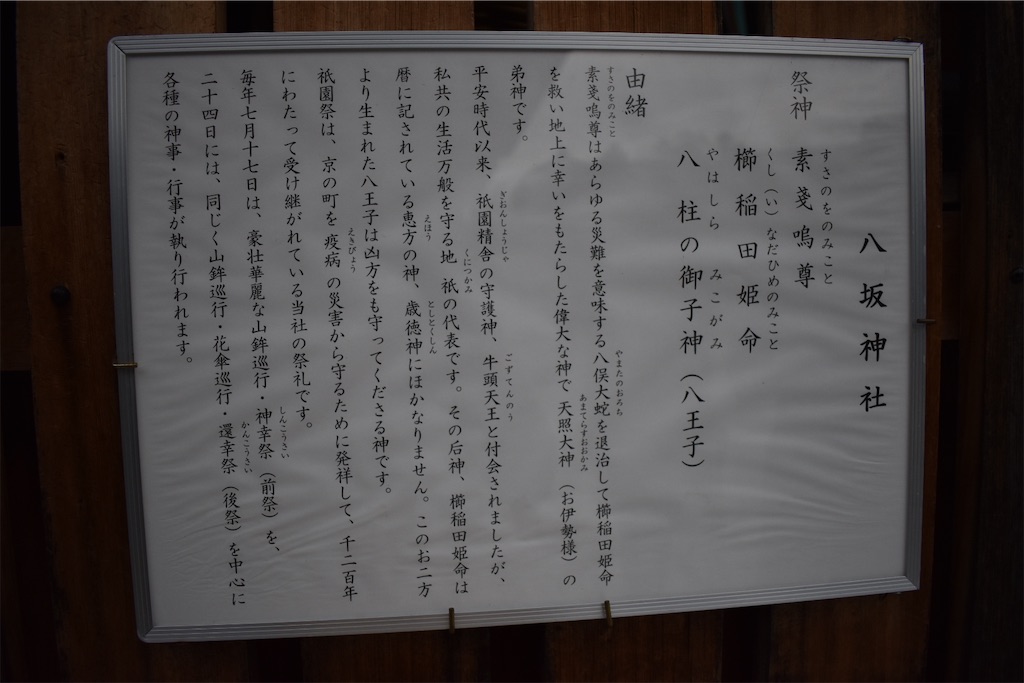 八坂神社
祭神 素戔嗚尊
すさのをのみこと
櫛稲田姫命
くし(い)なだひめのみこと
八柱の御子神(八王子)
やはしら みこがみ
由緒
素戔嗚尊はあらゆる災難を意味する八俣大蛇を退治して櫛稲田姫命
すさのをのみこと やまたのおろち
を救い地上に幸いをもたらした偉大な神で天照大神(お伊勢様)の
あまてらすおおかみ
弟神です。
平安時代以来、祇園精舎の守護神、牛頭天王と付会されましたが、
ぎおんしょうじゃ ごずてんのう
私共の生活万般を守る地祇の代表です。その后神、櫛稲田姫命は
くにつかみ
暦に記されている恵方の神、歳徳神にほかなりません。このお二方
えほう としとくしん
より生まれた八王子は凶方をも守ってくださる神です。
祇園祭は、京の町を疫病の災害から守るために発祥して、千二百年
えきびょう
にわたって受け継がれている当社の祭礼です。
毎年七月十七日は、豪壮華麗な山鉾巡行・神幸祭(前祭)を、
しんこうさい
二十四日には、同じく山鉾巡行・花傘巡行・還幸祭(後祭)を中心に
かんこうさい
各種の神事・行事が執り行われます。